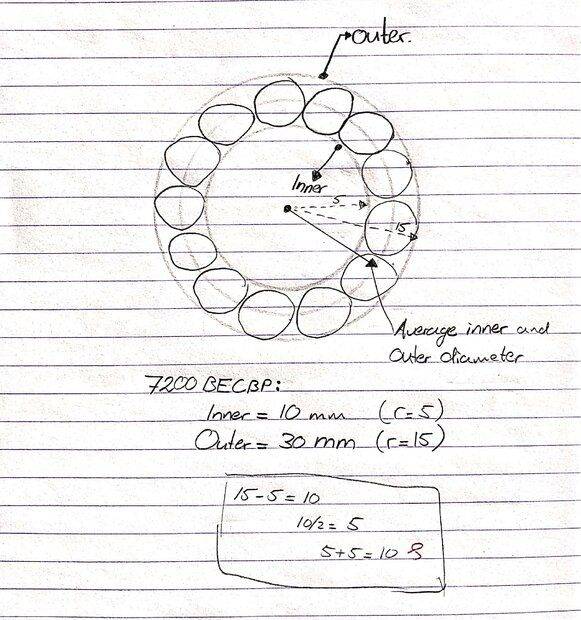 outer.
Inner
5
15
Average inner and
outer diameter
7200 BECBP:
Inner = 10 mm (r=5)
Outer = 30 mm (r=15)
15-5 = 10
10/2 = 5
5+5 = 10